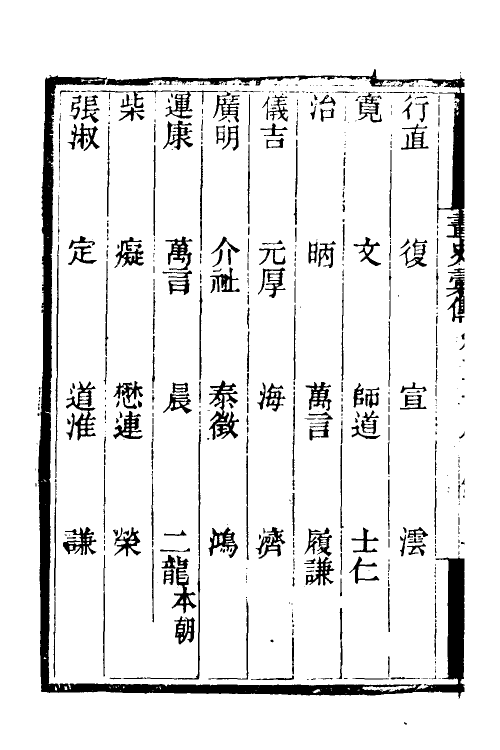 畫史彙傳
行直 復 宣 澐
寛 文 師道 士仁
治 昞 萬言 履謙
儀吉 元厚 海 濟
廣明 介社 泰徵 鴻
運康 萬言 晨 二龍 本朝
柴 癡 懋連 榮
張淑 定 道淮 謙